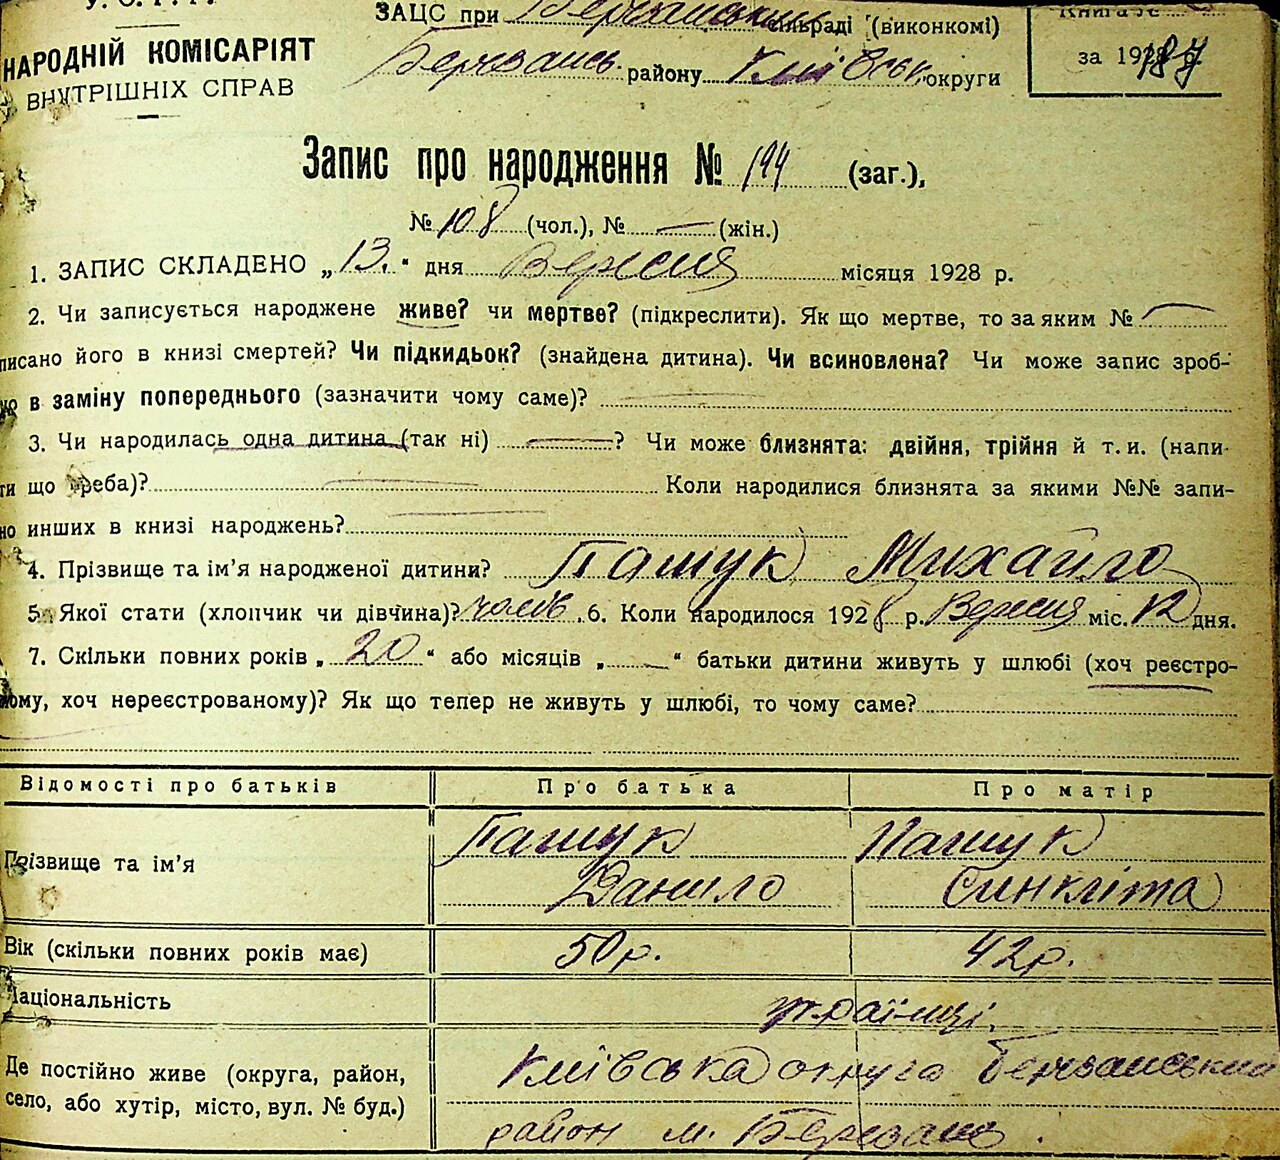 У. С. Р. Р.
НАРОДНІЙ КОМІСАРІЯТ
ВНУТРІШНІХ СПРАВ
ЗАЦС при Березанський сільраді (виконкомі)
Березансь. району Київськ округи
Книга №
за 192
Запис про народження № 194 (заг.),
№ 108 (чол.), № — (жін.)
1. ЗАПИС СКЛАДЕНО „13.“ дня Вересня місяця 1928 р.
2. Чи записується народжене живе? чи мертве? (підкреслити). Як що мертве, то за яким № —
писано його в книзі смертей? Чи підкидьок? (знайдена дитина). Чи всиновлена? Чи може запис зроб-
но в заміну попереднього (зазначити чому саме)?
3. Чи народилась одна дитина (так ні) — ? Чи може близнята: двійня, трійня й т. и. (напи-
ти що треба)? Коли народилися близнята за якими №№ запи-
но инших в книзі народжень?
4. Прізвище та ім’я народженої дитини? Пашук Михайло
5. Якої стати (хлопчик чи дівчина)? чолов. 6. Коли народилося 1928 р. Вересня міс. 12 дня.
7. Скільки повних років „20“ або місяців „—“ батьки дитини живуть у шлюбі (хоч реєстро-
ному, хоч нереєстрованому)? Як що тепер не живуть у шлюбі, то чому саме?
Відомості про батьків Про батька Про матір
Прізвище та ім’я Пашук Данило Пашук Синкліта
Вік (скільки повних років має) 50р. 42р.
Національність українці.
Де постійно живе (округа, район, село, або хутір, місто, вул. № буд.) Київська округа Березанський район м. Березань.